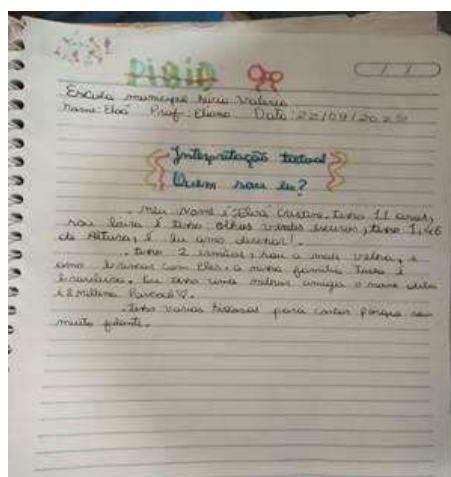 PIBID
Escola municipal Valeria
Nome: Eloá Prof: Eliana Data: 22/09/2025
Interpretação textual
Quem sou eu?
. Meu nome é Eloá Cristine, tenho 11 anos,
sou loira e tenho olhos verdes escuros, tenho 1,46
de Altura, e eu amo desenhar!.
. tenho 2 irmãos, sou a mais velha, e
amo brincar com Eles. a minha família Toda é
brasileira. Eu tenho uma melhor amiga o nome dela
é Emillena
. Tenho varias historias para contar porque sou
muito